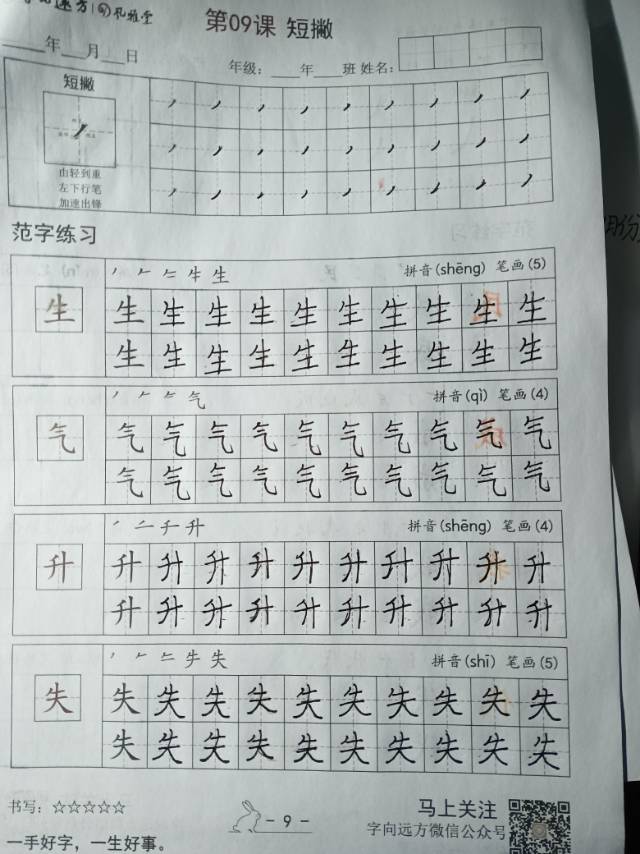 第09课 短撇
年 月 日
年级： 年 班 姓名：
短撇
由轻到重
左下行笔
加速出锋
范字练习
生 拼音(shēng) 笔画(5)
生 生 生 生 生 生 生 生 生 生 生
生 生 生 生 生 生 生 生 生 生
气 拼音(qì) 笔画(4)
气 气 气 气 气 气 气 气 气 气 气
气 气 气 气 气 气 气 气 气 气
升 拼音(shēng) 笔画(4)
升 升 升 升 升 升 升 升 升 升 升
升 升 升 升 升 升 升 升 升 升
失 拼音(shī) 笔画(5)
失 失 失 失 失 失 失 失 失 失 失
失 失 失 失 失 失 失 失 失 失
书写：☆☆☆☆☆
- 9 -
马上关注
字向远方微信公众号
一手好字，一生好事。